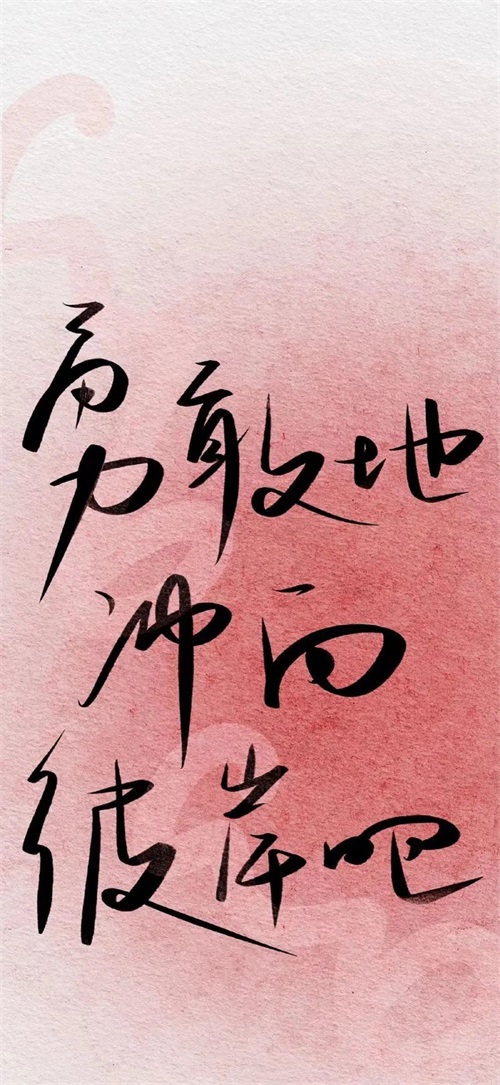 勇敢地
冲向
彼岸吧